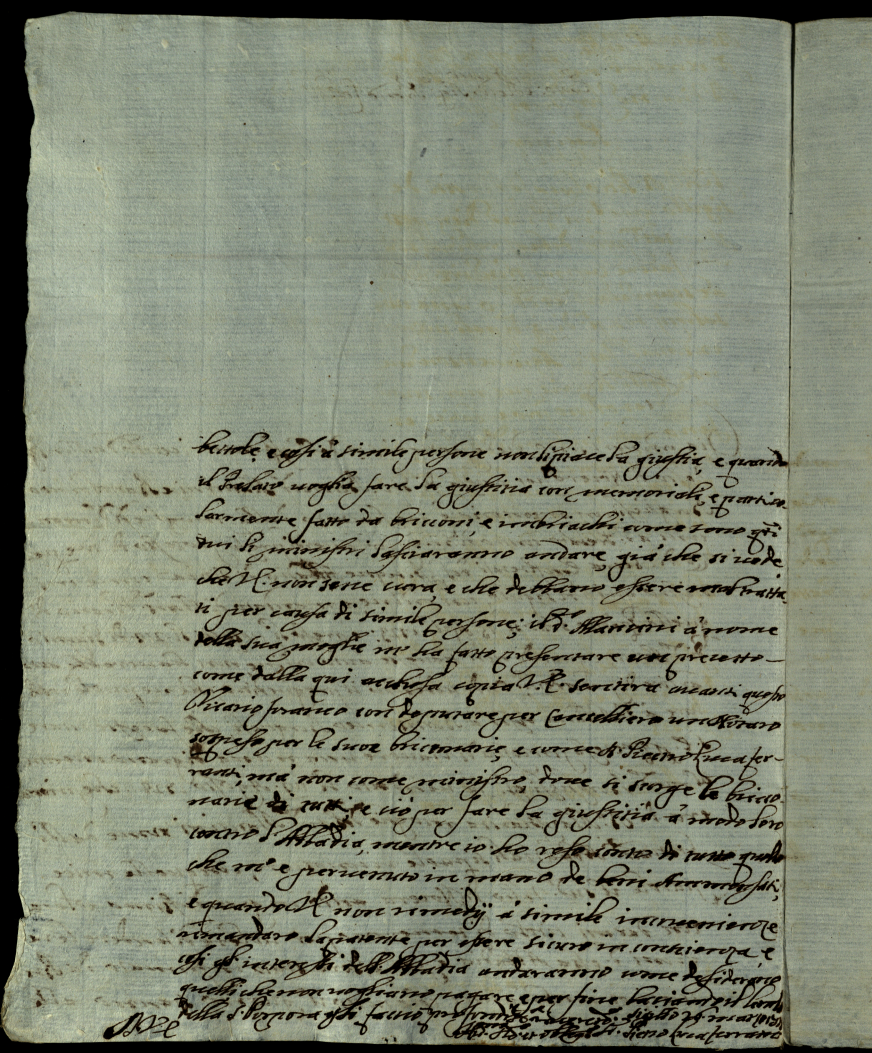 bettole, e così à simile persone non li piace la giustitia, e quando
il Prelato voglia fare la giustitia con memoriali, e partico
larmente fatto da bricconi, e imbriachi come sono
tui li ministri lasciaranno andare, già che si vede
che non sene cura, e che debbano essere maltratta
ti per causa di simile persone; il d.º Mancini à nome
della sua moglie mi ha fatto presentare un precetto
come dalla qui acclusa copia sentirà avanti questo
Vicario foraneo con deputare per Cancelliero un Notaro
sospeso per le sue bricconarie, e come di Pietro Luca fer-
ranti, mà non come ministro, dove si scorge le bricco
narie di tutti, e ciò per fare la giustitia à modo loro
contro l'Abbadia, mentre io ho reso conto di tutto quello
che mi è pervenuto in mano de beni
e quando non remedij à simile inconvenienze
rimandarò la patente per essere sicuro in conscienza, e
così gl'interessi dell'Abbadia andaranno come desiderano
quelli che non vogliano pagare, e per fine baciandoli
della S. Porpora gli faccio
Pietro Luca ferranti